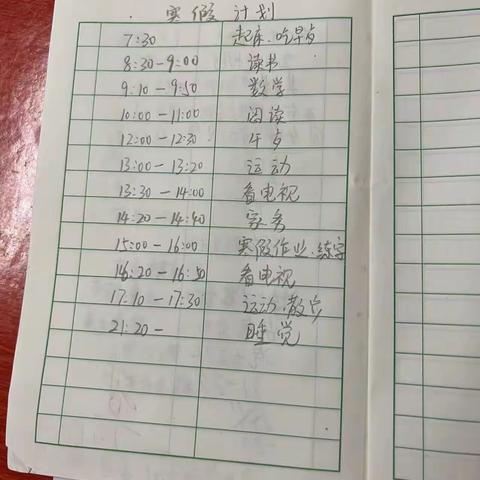 寒假计划
7:30 起床.吃早点
8:30-9:00 读书
9:10-9:50 数学
10:00-11:00 阅读
12:00-12:30 午点
13:00-13:20 运动
13:30-14:00 看电视
14:20-14:40 家务
15:00-16:00 寒假作业.练字
16:20-16:50 看电视
17:10-17:30 运动.散步
21:20- 睡觉